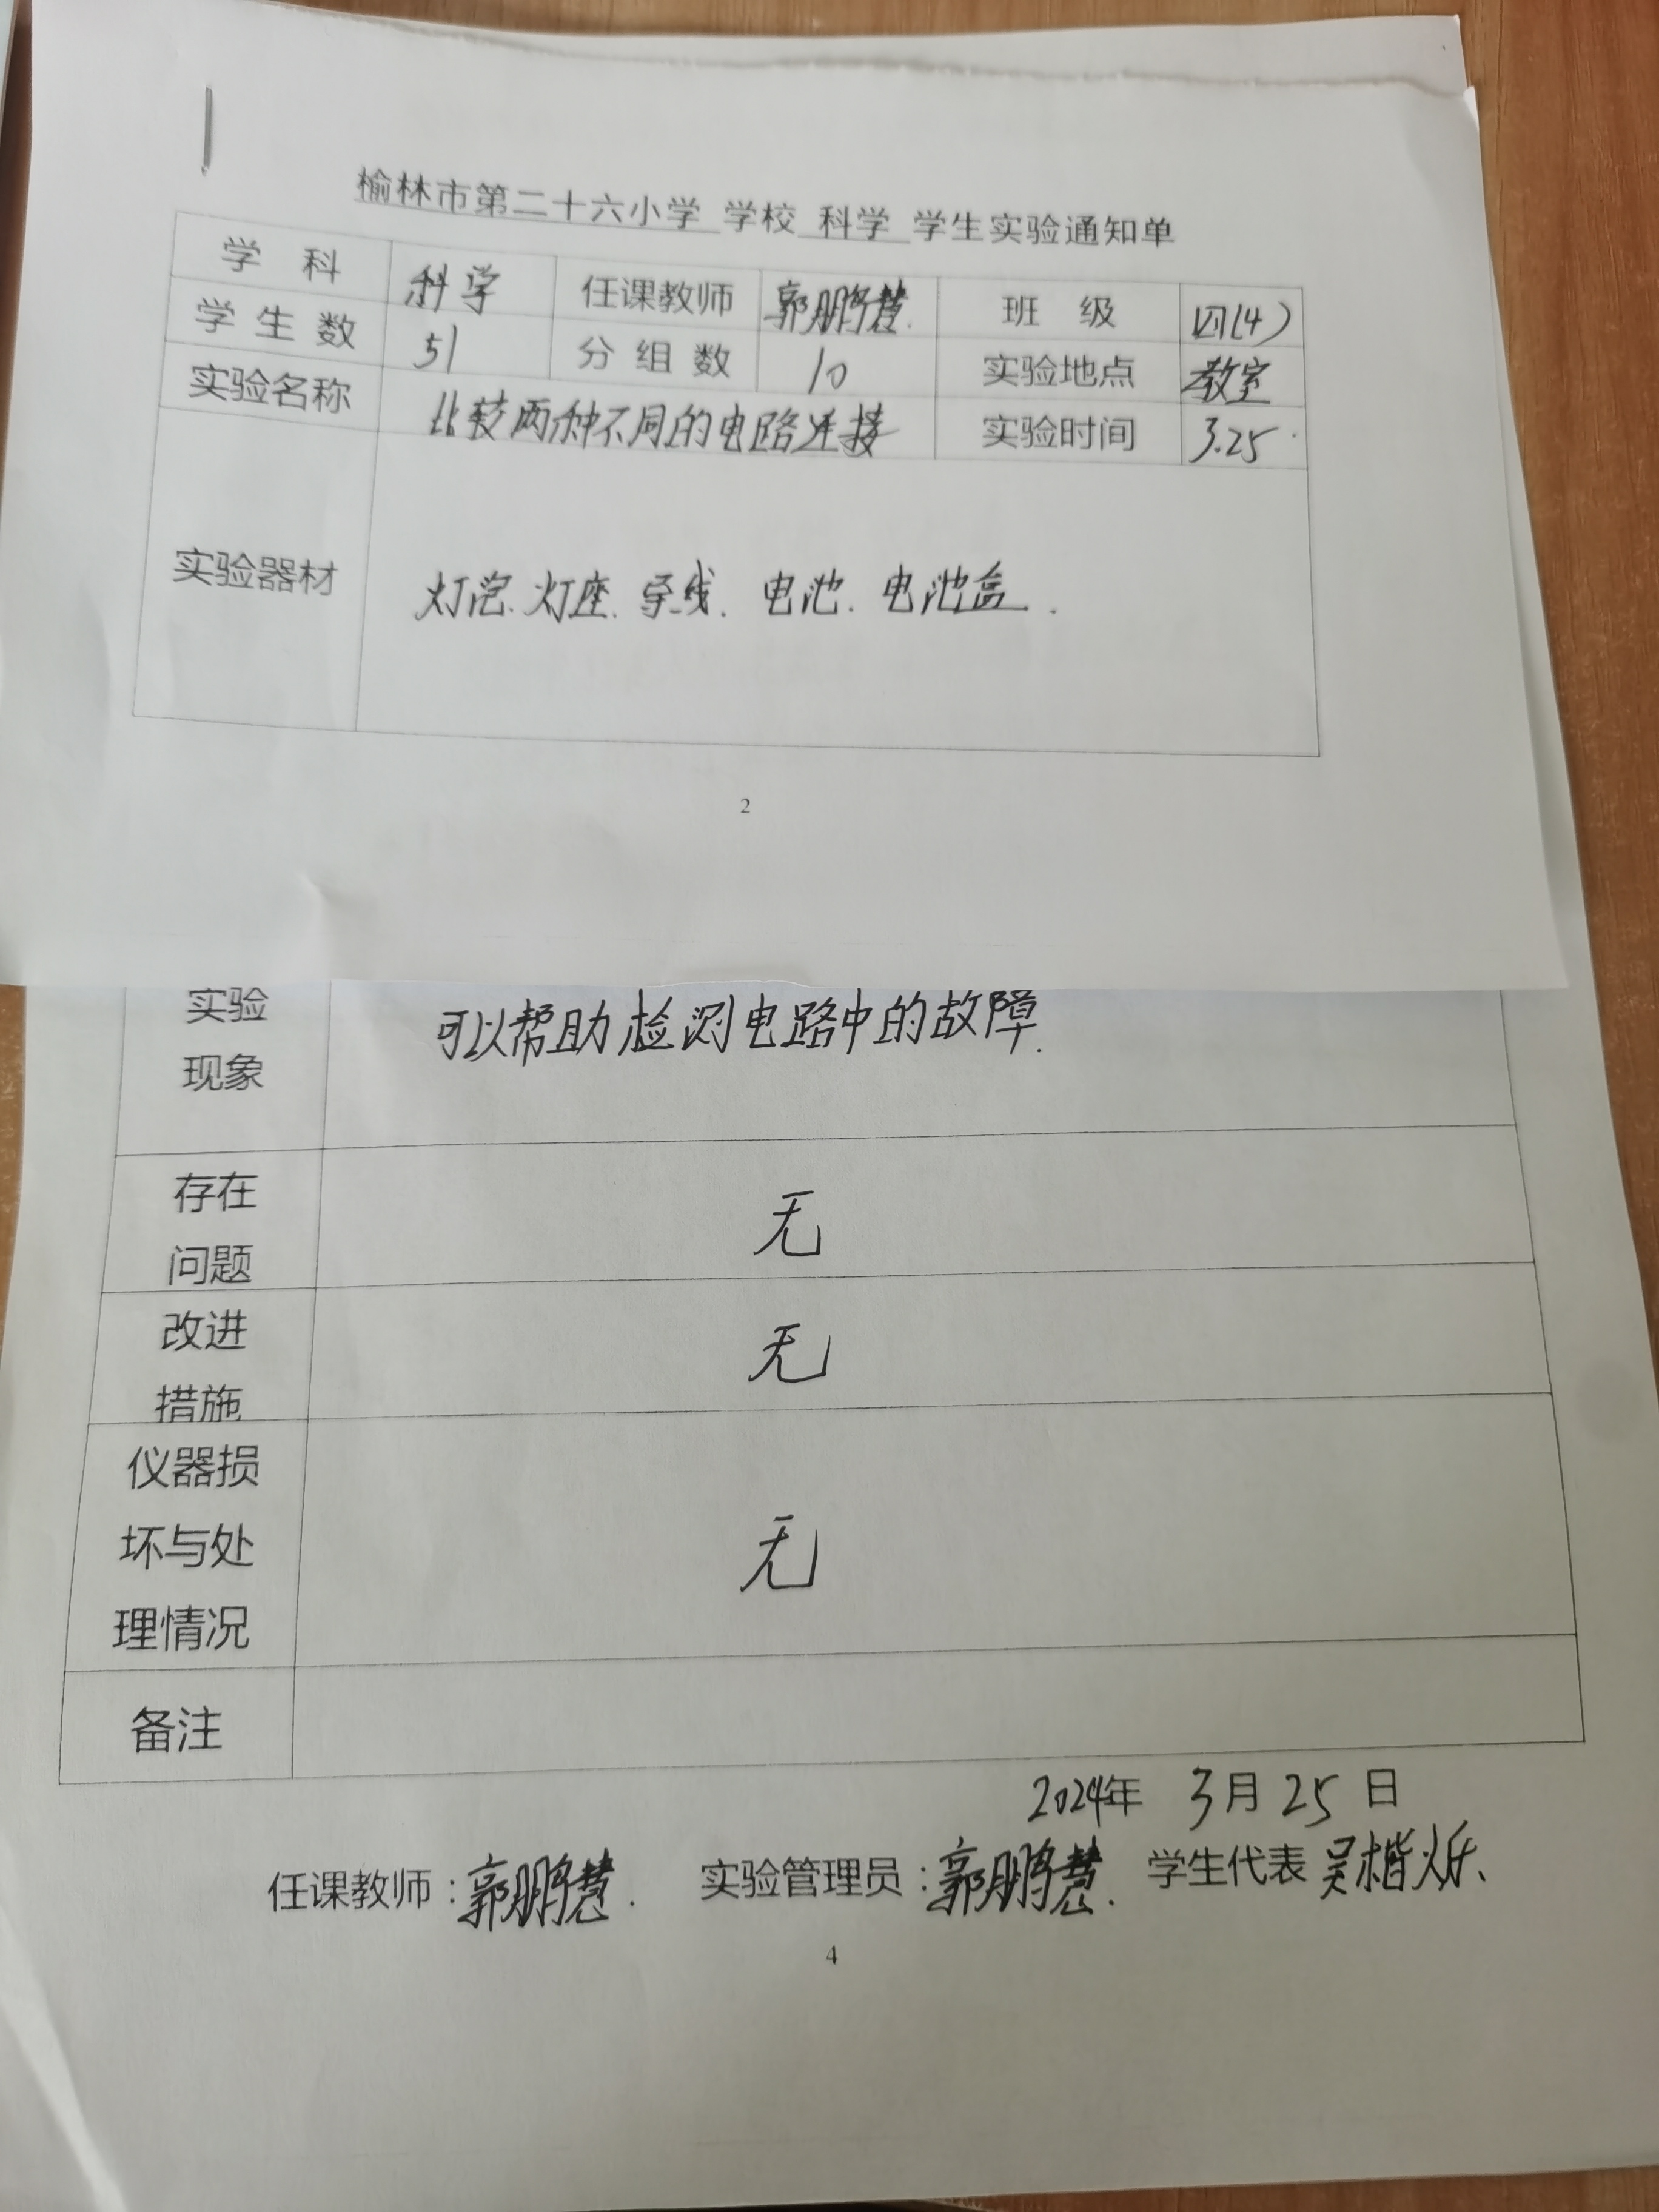 榆林市第二十六小学 学校 科学 学生实验通知单
学 科 科学 任课教师 郭鹏慧. 班 级 四(4)
学 生 数 51 分 组 数 10 实验地点 教室
实验名称 比较两种不同的电路连接 实验时间 3.25
实验器材 灯泡. 灯座. 导线. 电池. 电池盒.
2
实验
现象
可以帮助检测电路中的故障.
存在
问题
无
改进
措施
无
仪器损
坏与处
理情况
无
备注
2024年 3月25日
任课教师:郭鹏慧. 实验管理员:郭鹏慧. 学生代表 吴楷烁
4